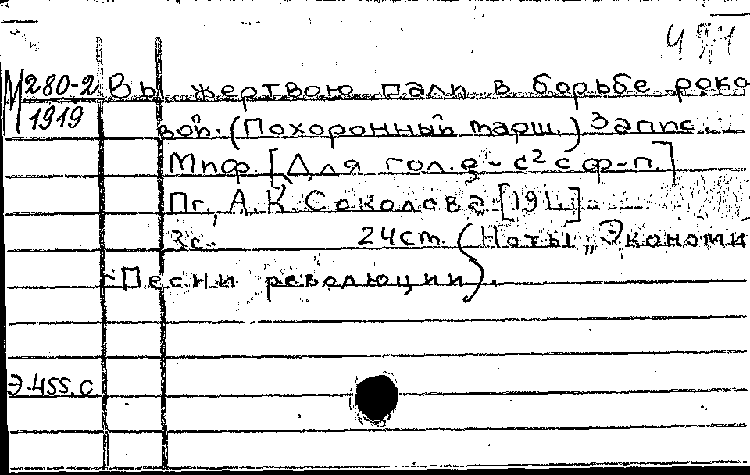 М 280-2 Вы жертвою пали в борьбе роко
1919 вой. (Похоронный марш.) Запис.
Мпф. [Для гол. e¹-c² с ф-п.]
Пг., А. К. Соколова [191.]
3с. 24 cm. (Ноты „Экономи
Песни революции).
Э.455.С